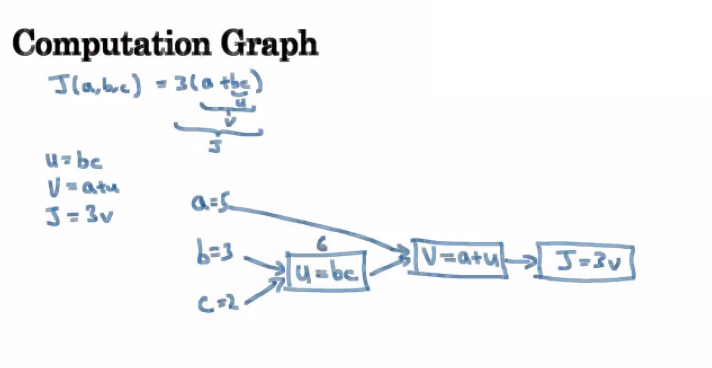 Computation Graph
J(a,b,c) = 3(a+bc)
u
v
J
u = bc
V = a+u
J = 3v
a=5
b=3
6
u=bc
V=a+u
J=3v
c=2